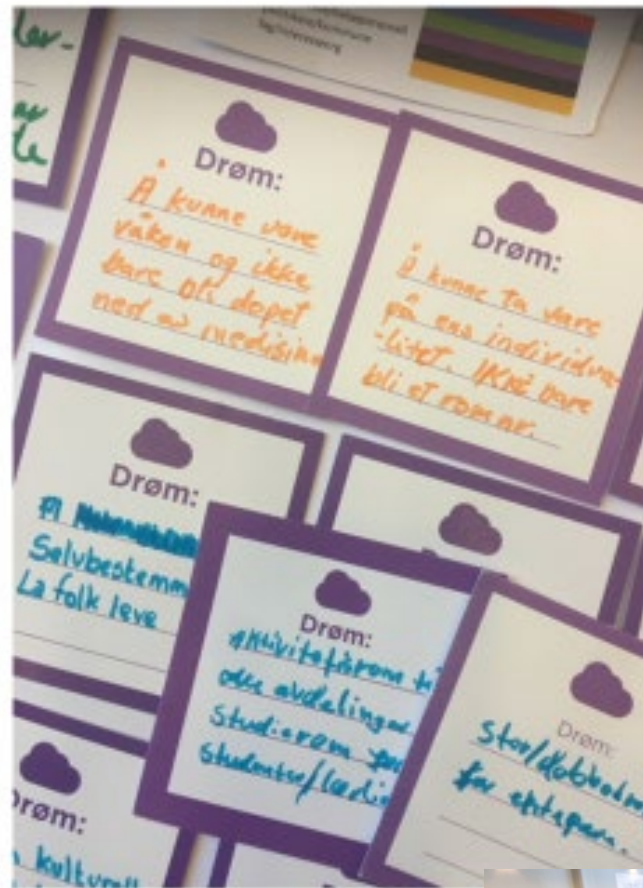 Drøm:
Å kunne vare
våken og ikke
bare bli dopet
ned av medisin
Drøm:
Å kunne ta vare
på ens individua
-litet. IKKE bare
bli et rom nr.
Drøm:
Å
Selvbestemm
La folk leve
Drøm:
Aktivitetsrom ti
alle avdelinger
Studierom for
studenter/lærli
Drøm:
Stor/dobbel
for ektepar.
Drøm:
kulturell